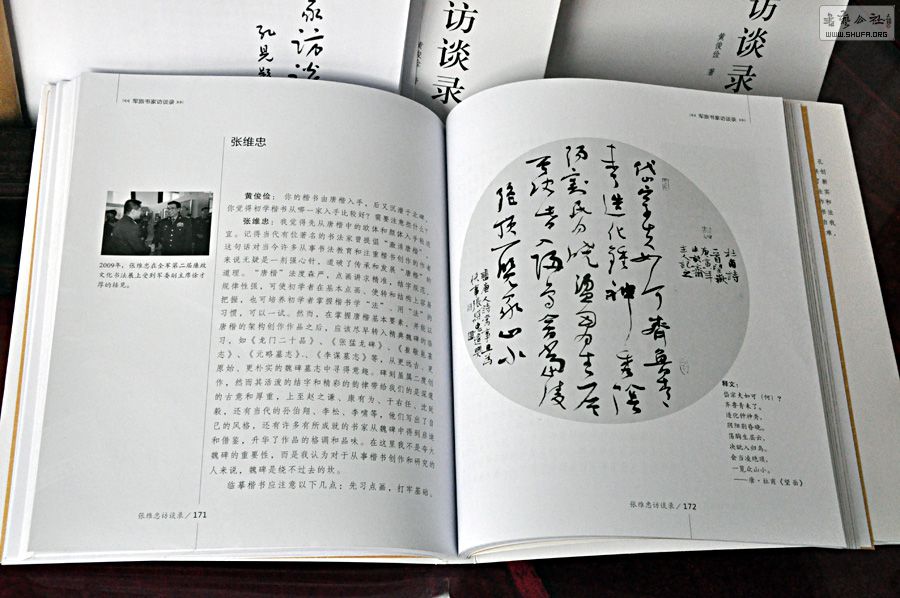 家访谈
孔见题
访谈录
黄俊俭 著
访谈录
黄俊俭 著
书艺公社
WWW.SHUFA.ORG
军旅书家访谈录
张维忠
2009年，张维忠在全军第二届廉政
文化书法展上受到军委副主席徐才
厚的接见。
黄俊俭：你的楷书由唐楷入手，后又沉潜于北碑，
你觉得初学楷书从哪一家入手比较好？需要注意些什么？
张维忠：我觉得先从唐楷中的欧体和颜体入手较适
宜。记得当代有位著名的书法家曾提倡“激活唐楷”，
这句话对当今许多从事书法教育和注重楷书创作的作者
来说无疑是一剂强心针，道破了传承和发展“唐楷”的
道理。“唐楷”法度森严，点画讲求精准，结字规范，
规律性强，可使初学者在基本点画、使转和结构上容易
把握，也可培养初学者掌握楷书学“法”、用“法”的
习惯，可以一试。然而，在掌握唐楷基本要素，并能以
唐楷的架构创作作品之后，应该尽早转入精典魏碑的临
习，如《龙门二十品》、《张猛龙碑》、《崔敬邕墓
志》、《元略墓志》、《李谋墓志》等，从更远古、更
原始、更朴实的魏碑墓志中寻得意趣。碑刻虽属二度创
作，然而其活泼的结字和精彩的韵律带给我们的是深邃
的古意和厚重，上至赵之谦、康有为、于右任、沈延
毅，还有当代的孙伯翔、李松、李啸等，他们写出了自
己的风格，还有许多有所成就的书家从魏碑中得到启迪
和借鉴，升华了作品的格调和品味。在这里我不是夸大
魏碑的重要性，而是我认为对于从事楷书创作和研究的
人来说，魏碑是绕不过去的坎。
临摹楷书应注意以下几点：先习点画，打牢基础。
张维忠访谈录／171
军旅书家访谈录
岱宗夫如何齐鲁青
未造化钟神秀阴
阳割昏晓荡胸生层
云决眦入归鸟会当凌
绝顶一览众山小
杜甫诗
释文：
岱宗夫如可（何）？
齐鲁青未了。
造化钟神秀，
阴阳割昏晓。
荡胸生层云，
决眦入归鸟。
会当凌绝顶，
一览众山小。
——唐·杜甫《望岳》
张维忠访谈录／172